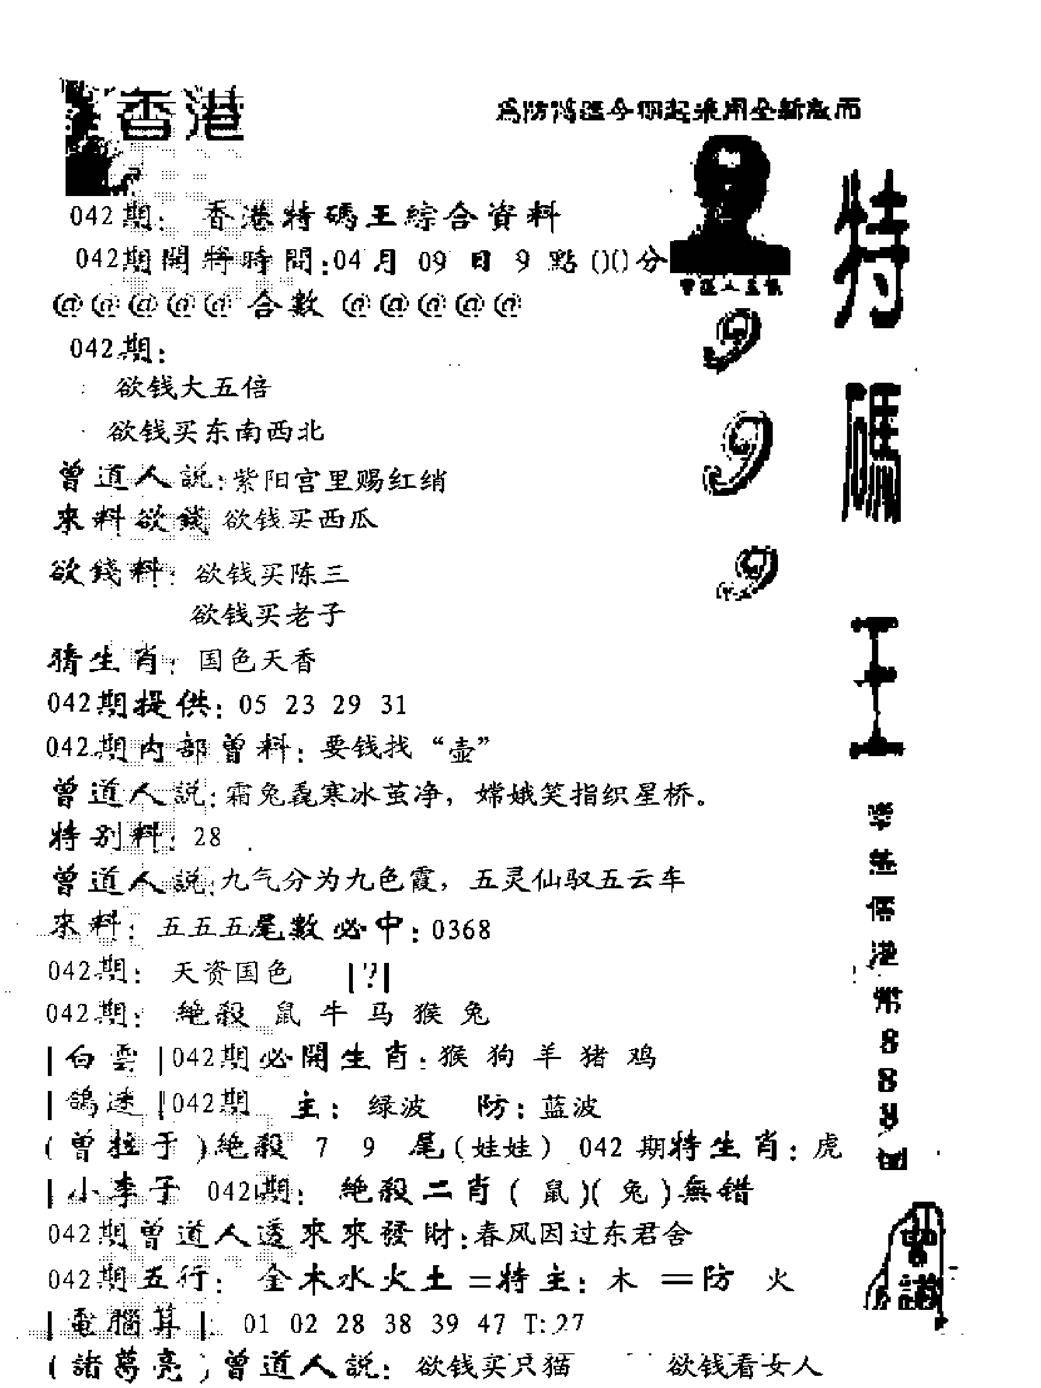 香港
042期: 香港特碼王綜合資料
042期開將時間:04月 09 日 9 點()()分
@@@@@ 合數 @@@@@
042期:
欲钱大五倍
欲钱买东南西北
曾道人説:紫阳宫里赐红绡
来料欲錢 欲钱买西瓜
欲錢料: 欲钱买陈三
欲钱买老子
猜生肖: 国色天香
042期提供: 05 23 29 31
042期内部曾料: 要钱找“壶”
曾道人説:霜兔毳寒冰茧净，嫦娥笑指织星桥。
特别料: 28
曾道人説:九气分为九色霞，五灵仙驭五云车
來料: 五五五尾數必中: 0368
042期: 天资国色 |?|
042期: 絶殺 鼠 牛 马 猴 兔
|白雲|042期必開生肖: 猴 狗 羊 猪 鸡
|鴿迷|042期 主: 绿波 防: 蓝波
(曾拉于)絶殺 7 9 尾(娃娃) 042 期特生肖: 虎
|小李子 042期: 絶殺二肖(鼠)(兔)無错
042期曾道人透來來發財:春风因过东君舍
042期五行: 金木水火土=特主: 木 =防 火
|電腦算|: 01 02 28 38 39 47 T:27
(諸葛亮)曾道人説: 欲钱买只猫 欲钱看女人
9
9
9
特碼王
港幣888